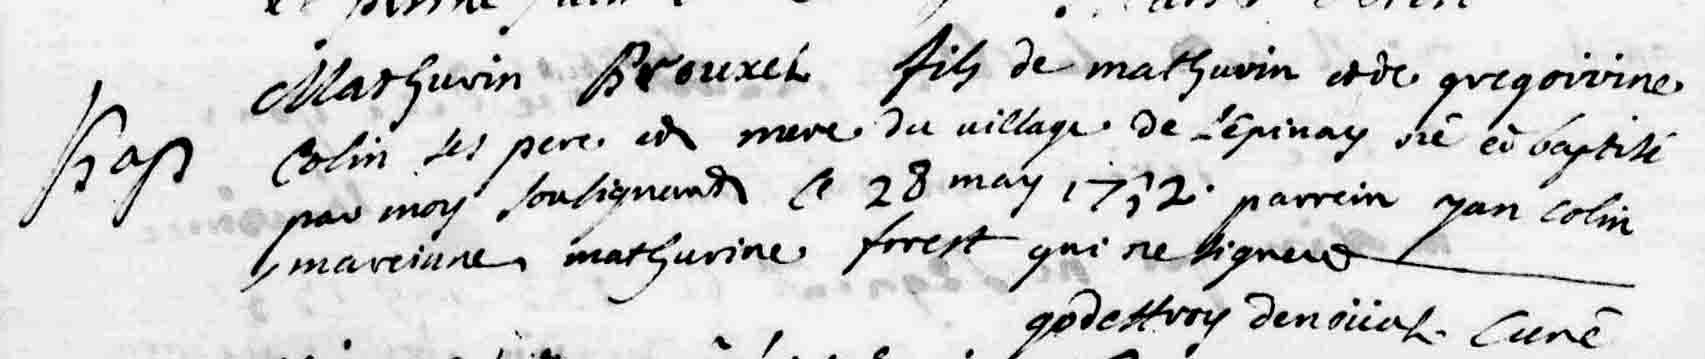 Mathurin Brouxel fils de mathurin et de gregoirine
bap
Colin ses pere et mere du village de L'épinay né et baptisé
par moy sousignant le 28 may 1732 parrein yan Colin
mareinne mathurine forest qui ne signent
godeffroy denoüal Curé